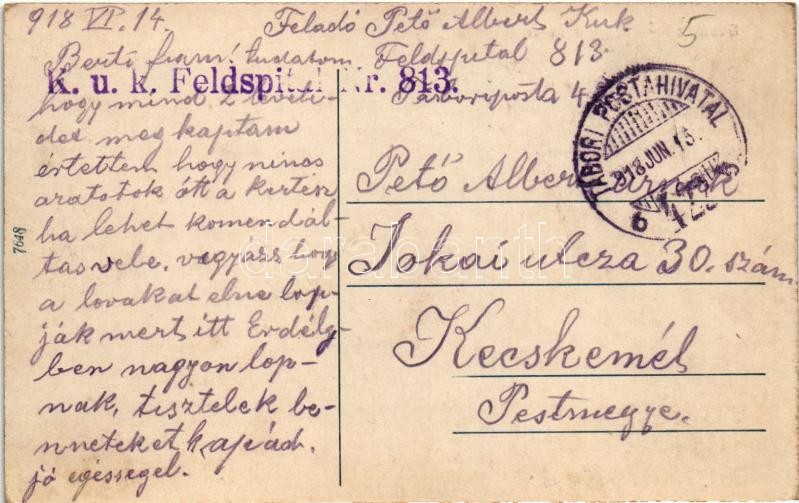 918 VI. 14.
Feladó Pető Albert Kuk
Feldspital 813.
Táboriposta 4
5
Berti fiam! tudatom
K. u. k. Feldspital Nr. 813.
hogy mind 2 leveli-
det megkaptam
értettem hogy nincs
aratotok ótt a kertész
ha lehet komendál-
tasvele, vagyázs hogy
a lovakat elne lop-
ják mert itt Erdély-
ben nagyon lop-
nak, tisztelek be-
nneteket kapád.
jó egésségel.
TÁBORI POSTAHIVATAL
918 JUN. 15.
b
Pető Albert úrnak
Jokai utcza 30. szám
Kecskemét
Pestmegye.
7648
darabanth